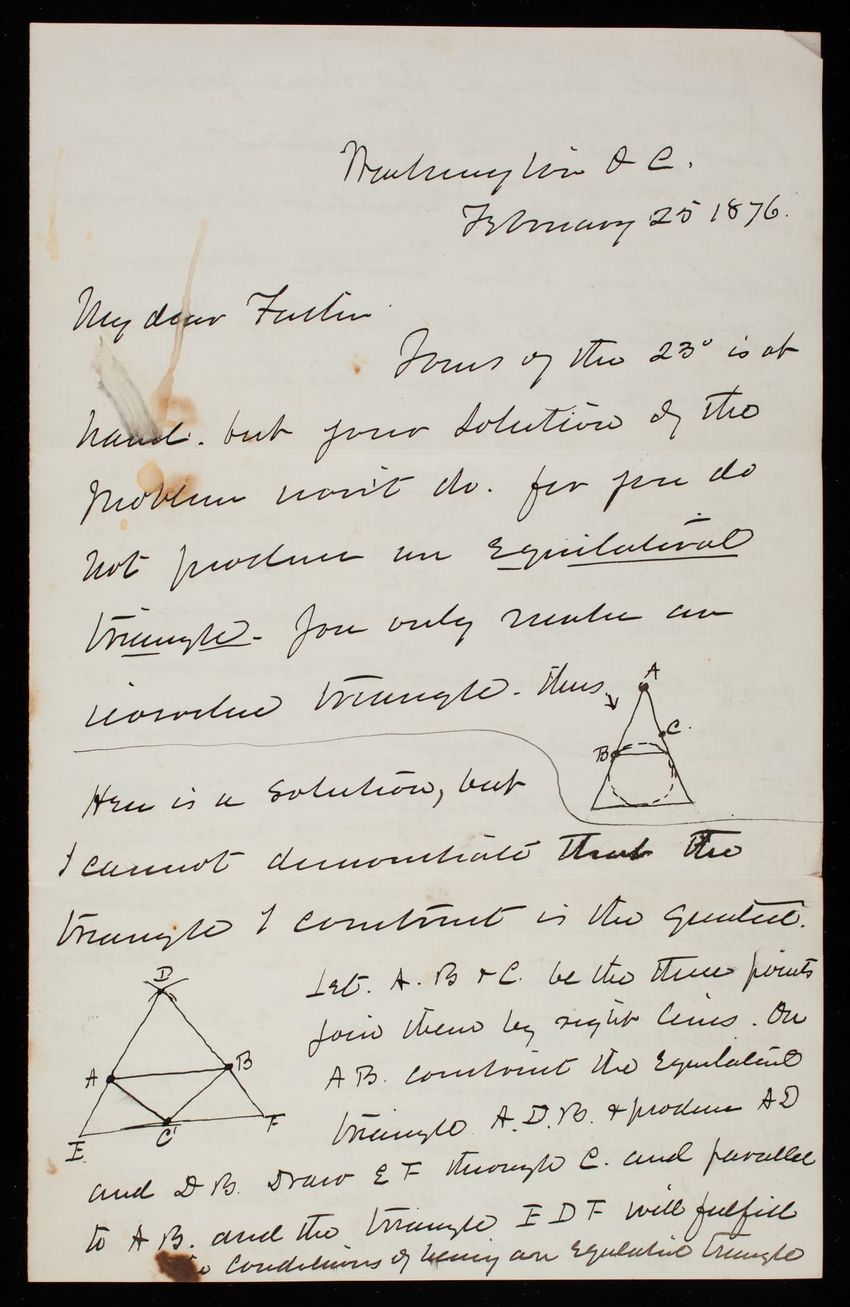 Washington D C.
February 25 1876.
My dear Father
Yours of the 23d is at
hand. but your solution of the
problem won't do. for you do
not produce an Equilateral
triangle. You only make an
isosceles triangle. thus
A
C.
B
Here is a solution, but
I cannot demonstrate that the
triangle I construct is the greatest.
D
Let. A. B & C. be the three points
join them by right lines. On
A B. construct the Equilateral
triangle A. D. B. & produce AD
A
B
E
C
F
and D B. Draw E F through C. and parallel
to A B. and the triangle E D F will fulfill
conditions of being an Equilateral triangle